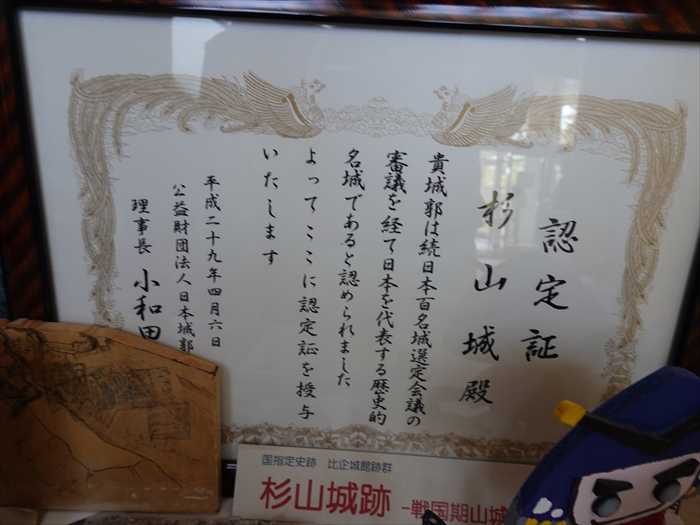 認定証
杉山城殿
貴城郭は続日本百名城選定会議の
審議を経て日本を代表する歴史的
名城であると認められました
よってここに認定証を授与
いたします
平成二十九年四月六日
公益財団法人日本城郭
理事長 小和田
国指定史跡 比企城館跡群
杉山城跡 -戦国期山城